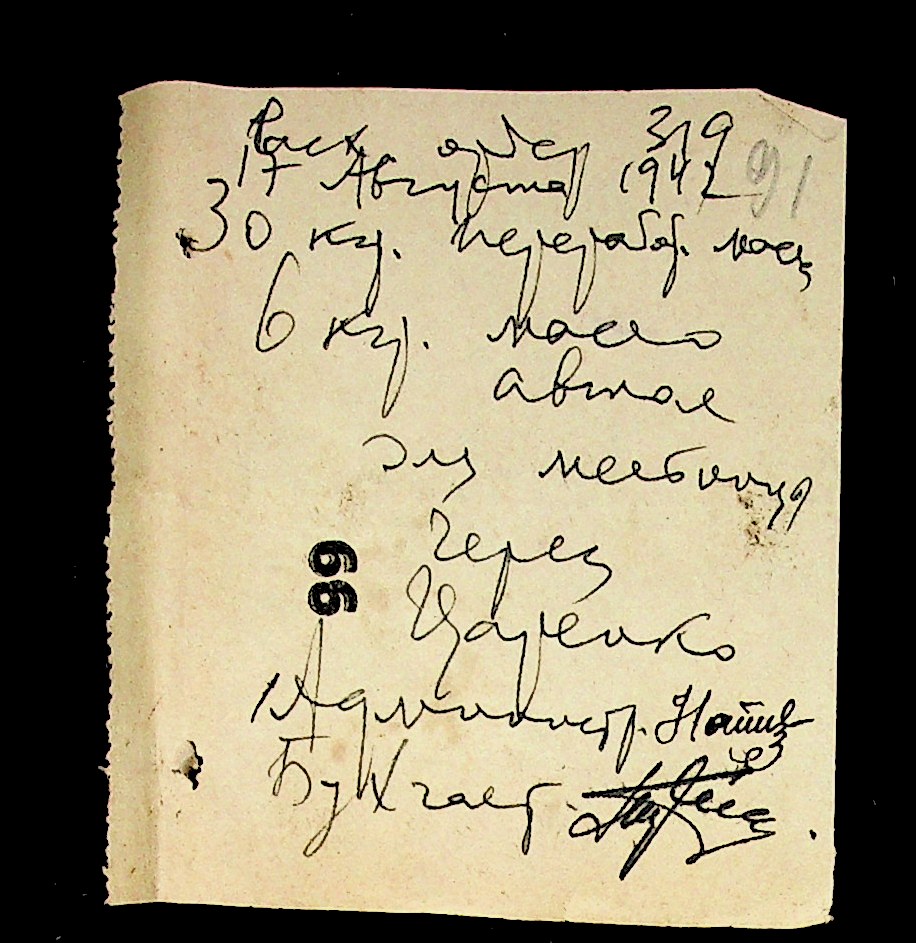 Расх. ордер 319
91
17 Августа 1942
30 кгр. переработ. масл
6 кгр. масло
автол
для мельницы
Через
Царенко
99
Администр.
Бухгалт.